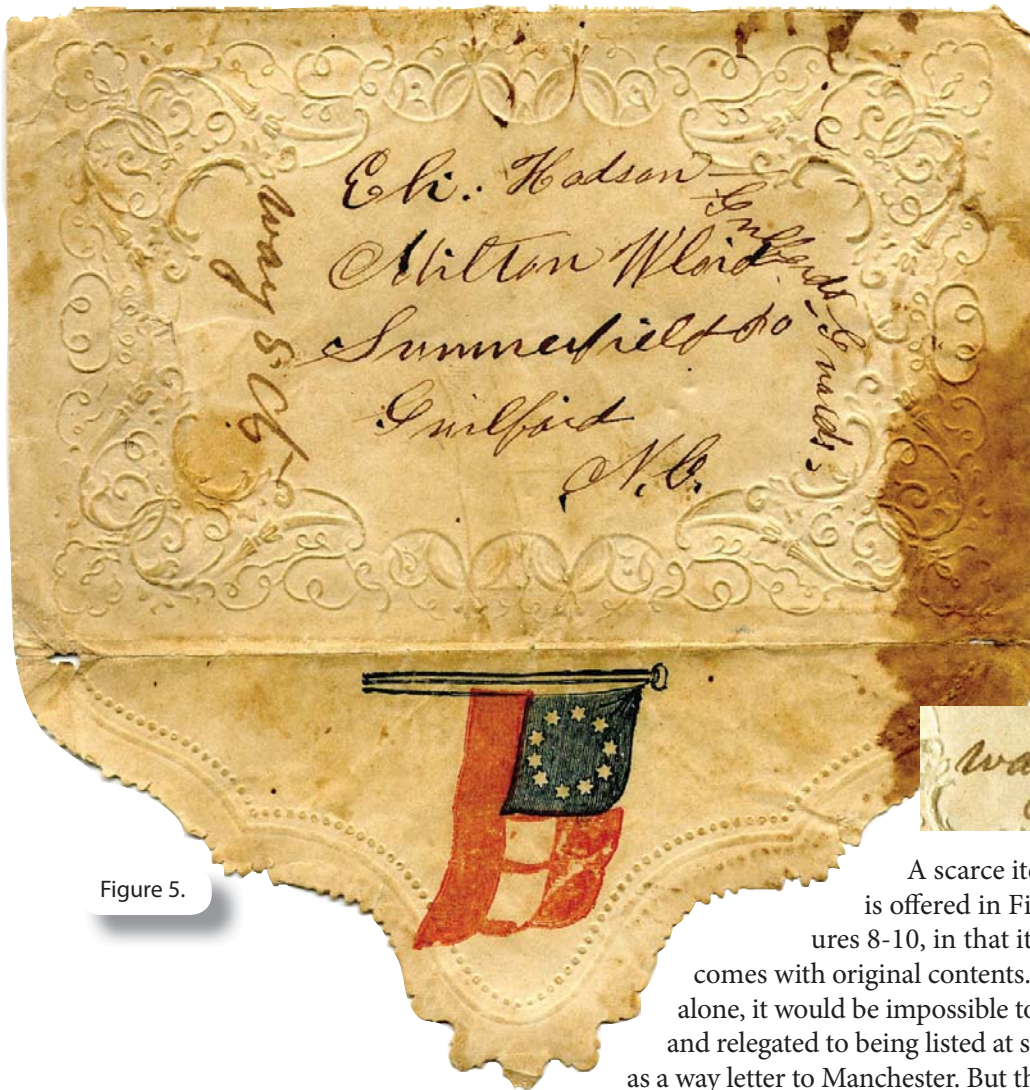 Eli. Hodson
Milton
Summerfield Po
Guilford
N.C.
Way 5 Ct
Guards
wa
Figure 5.
A scarce ite
is offered in Fi
ures 8-10, in that it
comes with original contents.
alone, it would be impossible to
and relegated to being listed at s
as a way letter to Manchester. But th